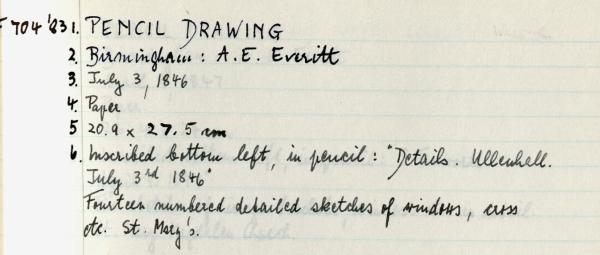 F 704 '83 1. PENCIL DRAWING
2. Birmingham: A.E. Everitt
3. July 3, 1846
4. Paper
5 20.9 x 27.5 cm
6. Inscribed bottom left, in pencil: "Details. Ullenhall.
July 3rd 1846"
Fourteen numbered detailed sketches of windows, cross
etc. St. Mary's.